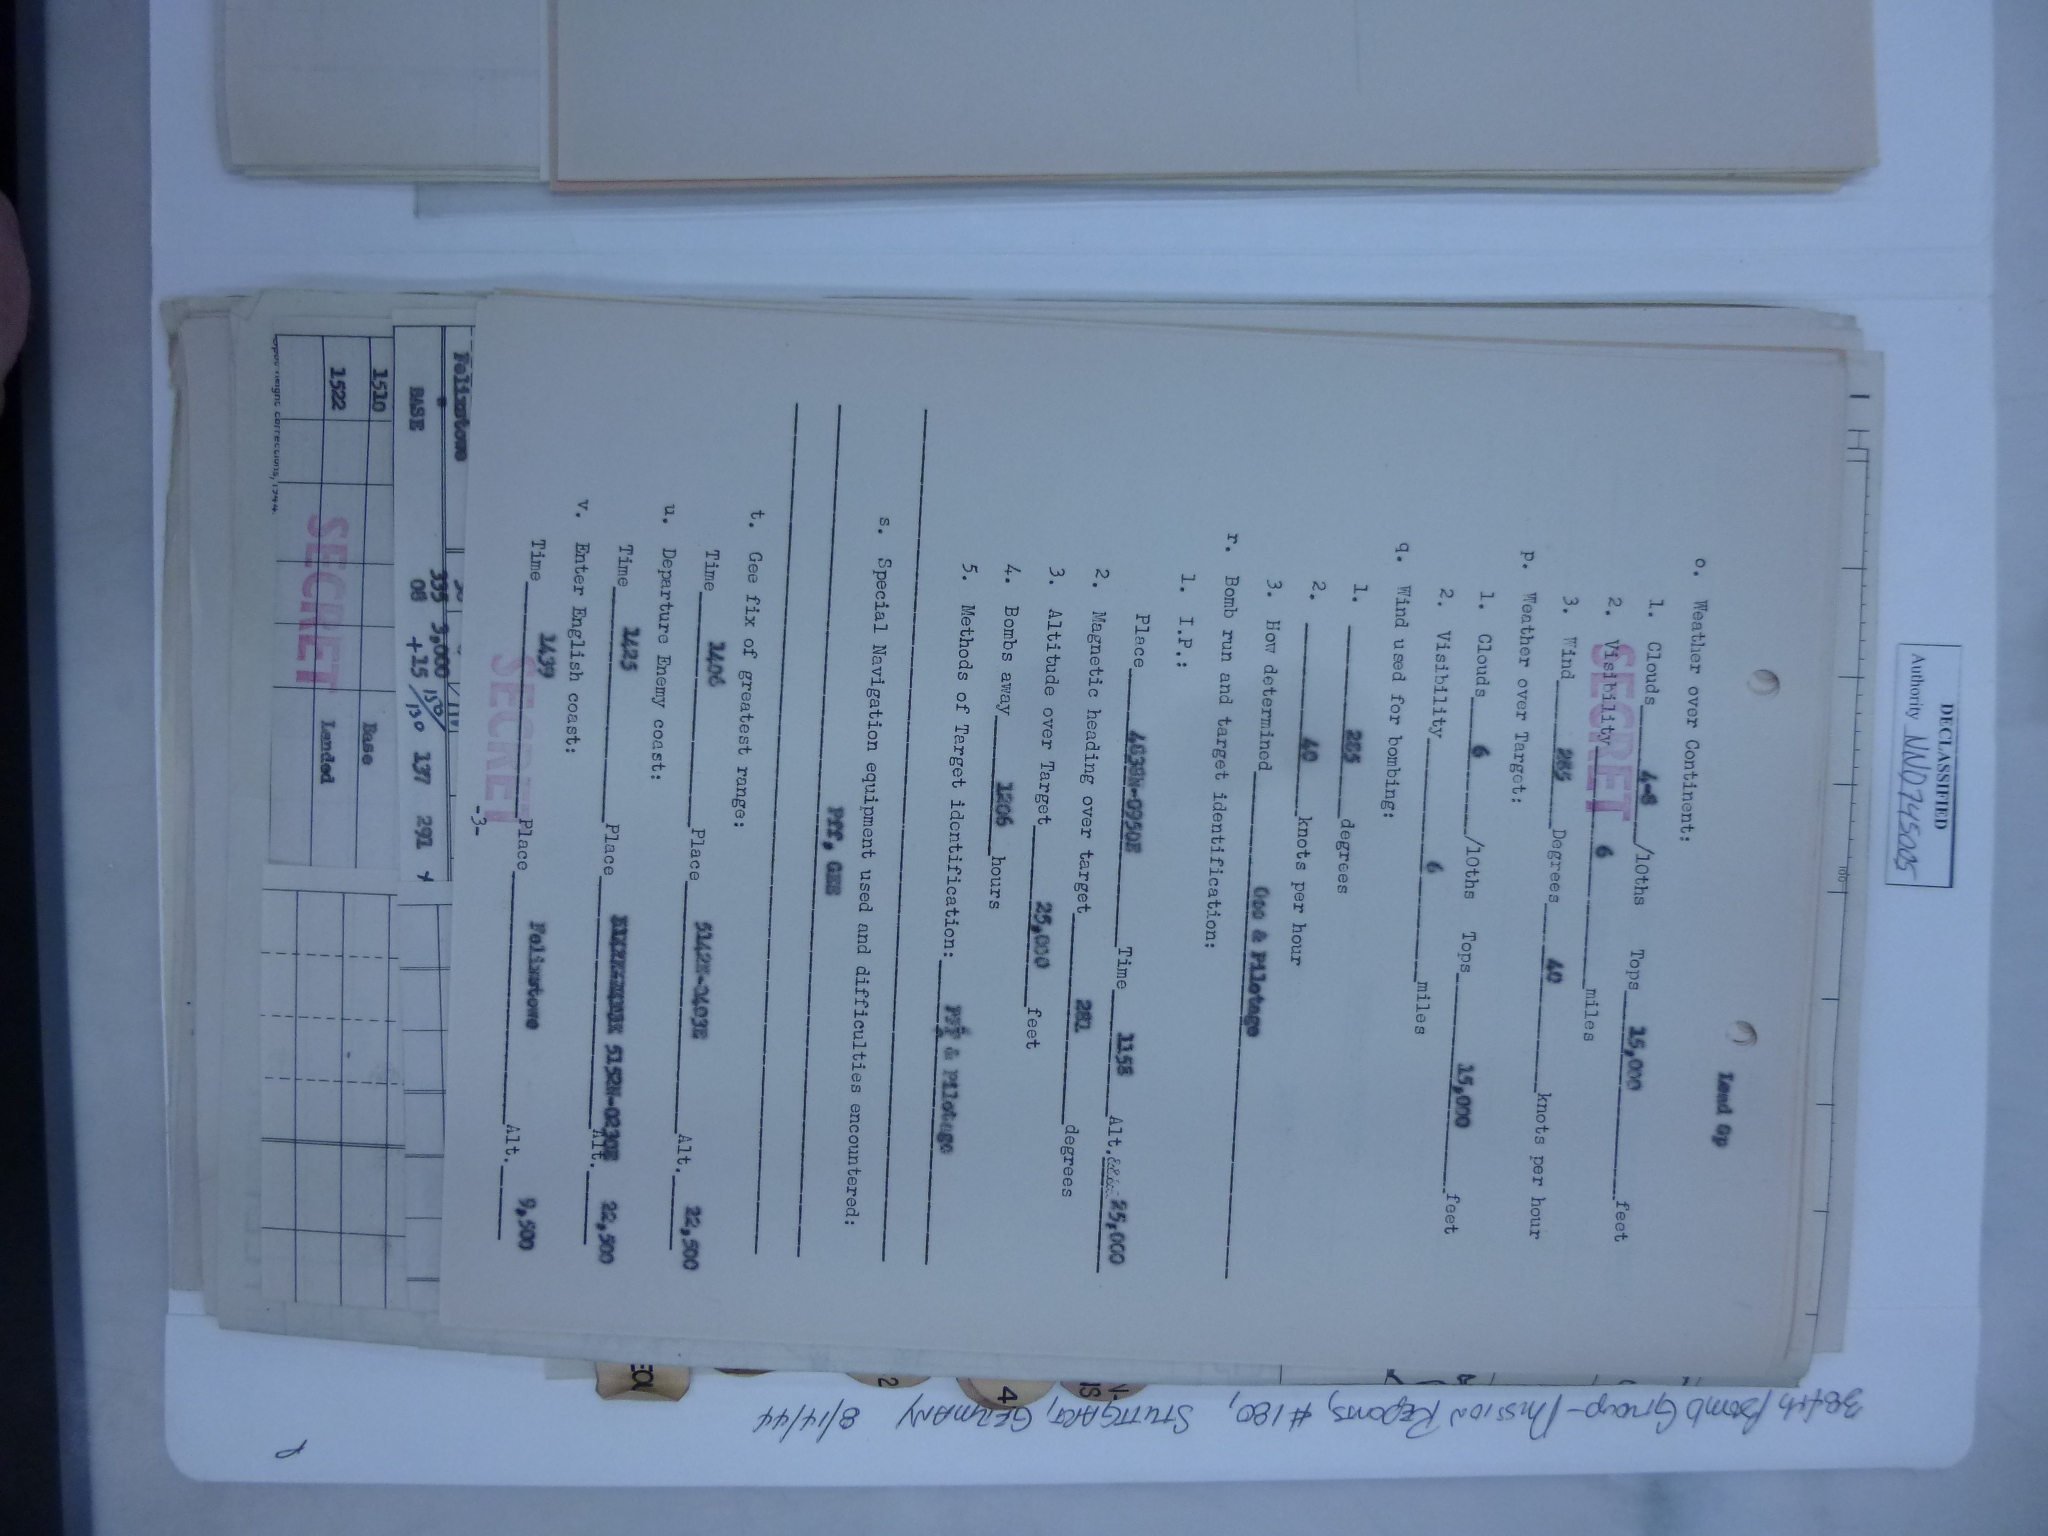 DECLASSIFIED
Authority NND745005
Lead Gp
o. Weather over Continent:
1. Clouds 4-8 /10ths Tops 15,000 feet
2. Visibility 6 miles
SECRET
3. Wind 285 Degrees 40 knots per hour
p. Weather over Target:
1. Clouds 6 /10ths Tops 15,000 feet
2. Visibility 6 miles
q. Wind used for bombing:
1. 285 degrees
2. 40 knots per hour
3. How determined & Pilotage
r. Bomb run and target identification:
1. I.P.:
Place 4838N-0950E Time 1158 Alt. 25,000
2. Magnetic heading over target 281 degrees
3. Altitude over Target 25,000 feet
4. Bombs away 1206 hours
5. Methods of Target identification: PFF & Pilotage
s. Special Navigation equipment used and difficulties encountered:
PFF, GEE
t. Gee fix of greatest range:
Time 1406 Place Alt. 22,500
u. Departure Enemy coast:
Time 1425 Place 5152N-0230E Alt. 22,500
v. Enter English coast:
Time 1439 Place Felixstowe Alt. 9,500
SECRET
-3-
Felixstowe 335 3,000 150
" BASE 08 +15 /130 137 291
1510 Base
1522 Landed
SECRET
384th Bomb Group - Mission Reports, #180, STUTTGART, GERMANY 8/14/44
P